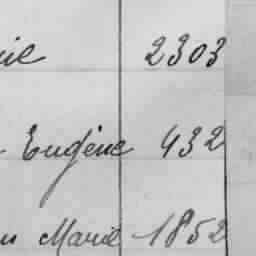 2303
Eugène 432
Marie 1852